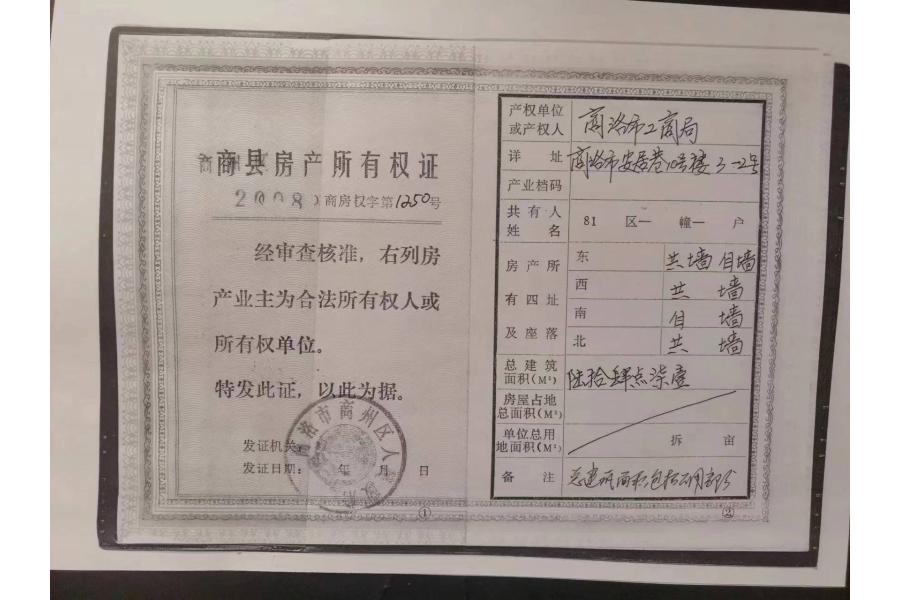 商县房产所有权证
2008)商房权字第1250号
经审查核准，右列房
产业主为合法所有权人或
所有权单位。
特发此证，以此为据。
发证机关:
发证日期: 年 月 日
商洛市商州区人
①
产权单位或产权人 商洛市工商局
详址 商洛市安居巷10号楼3-2号
产业档码
共有人姓名 81 区一 幢一 户
房产所有四址及座落
东 共墙 自墙
西 共墙
南 自墙
北 共墙
总建筑面积(M²) 陆拾肆点柒壹
房屋占地总面积(M²)
单位总用地面积(M²) 拆 亩
备注 总建筑面积包括公用部分
②